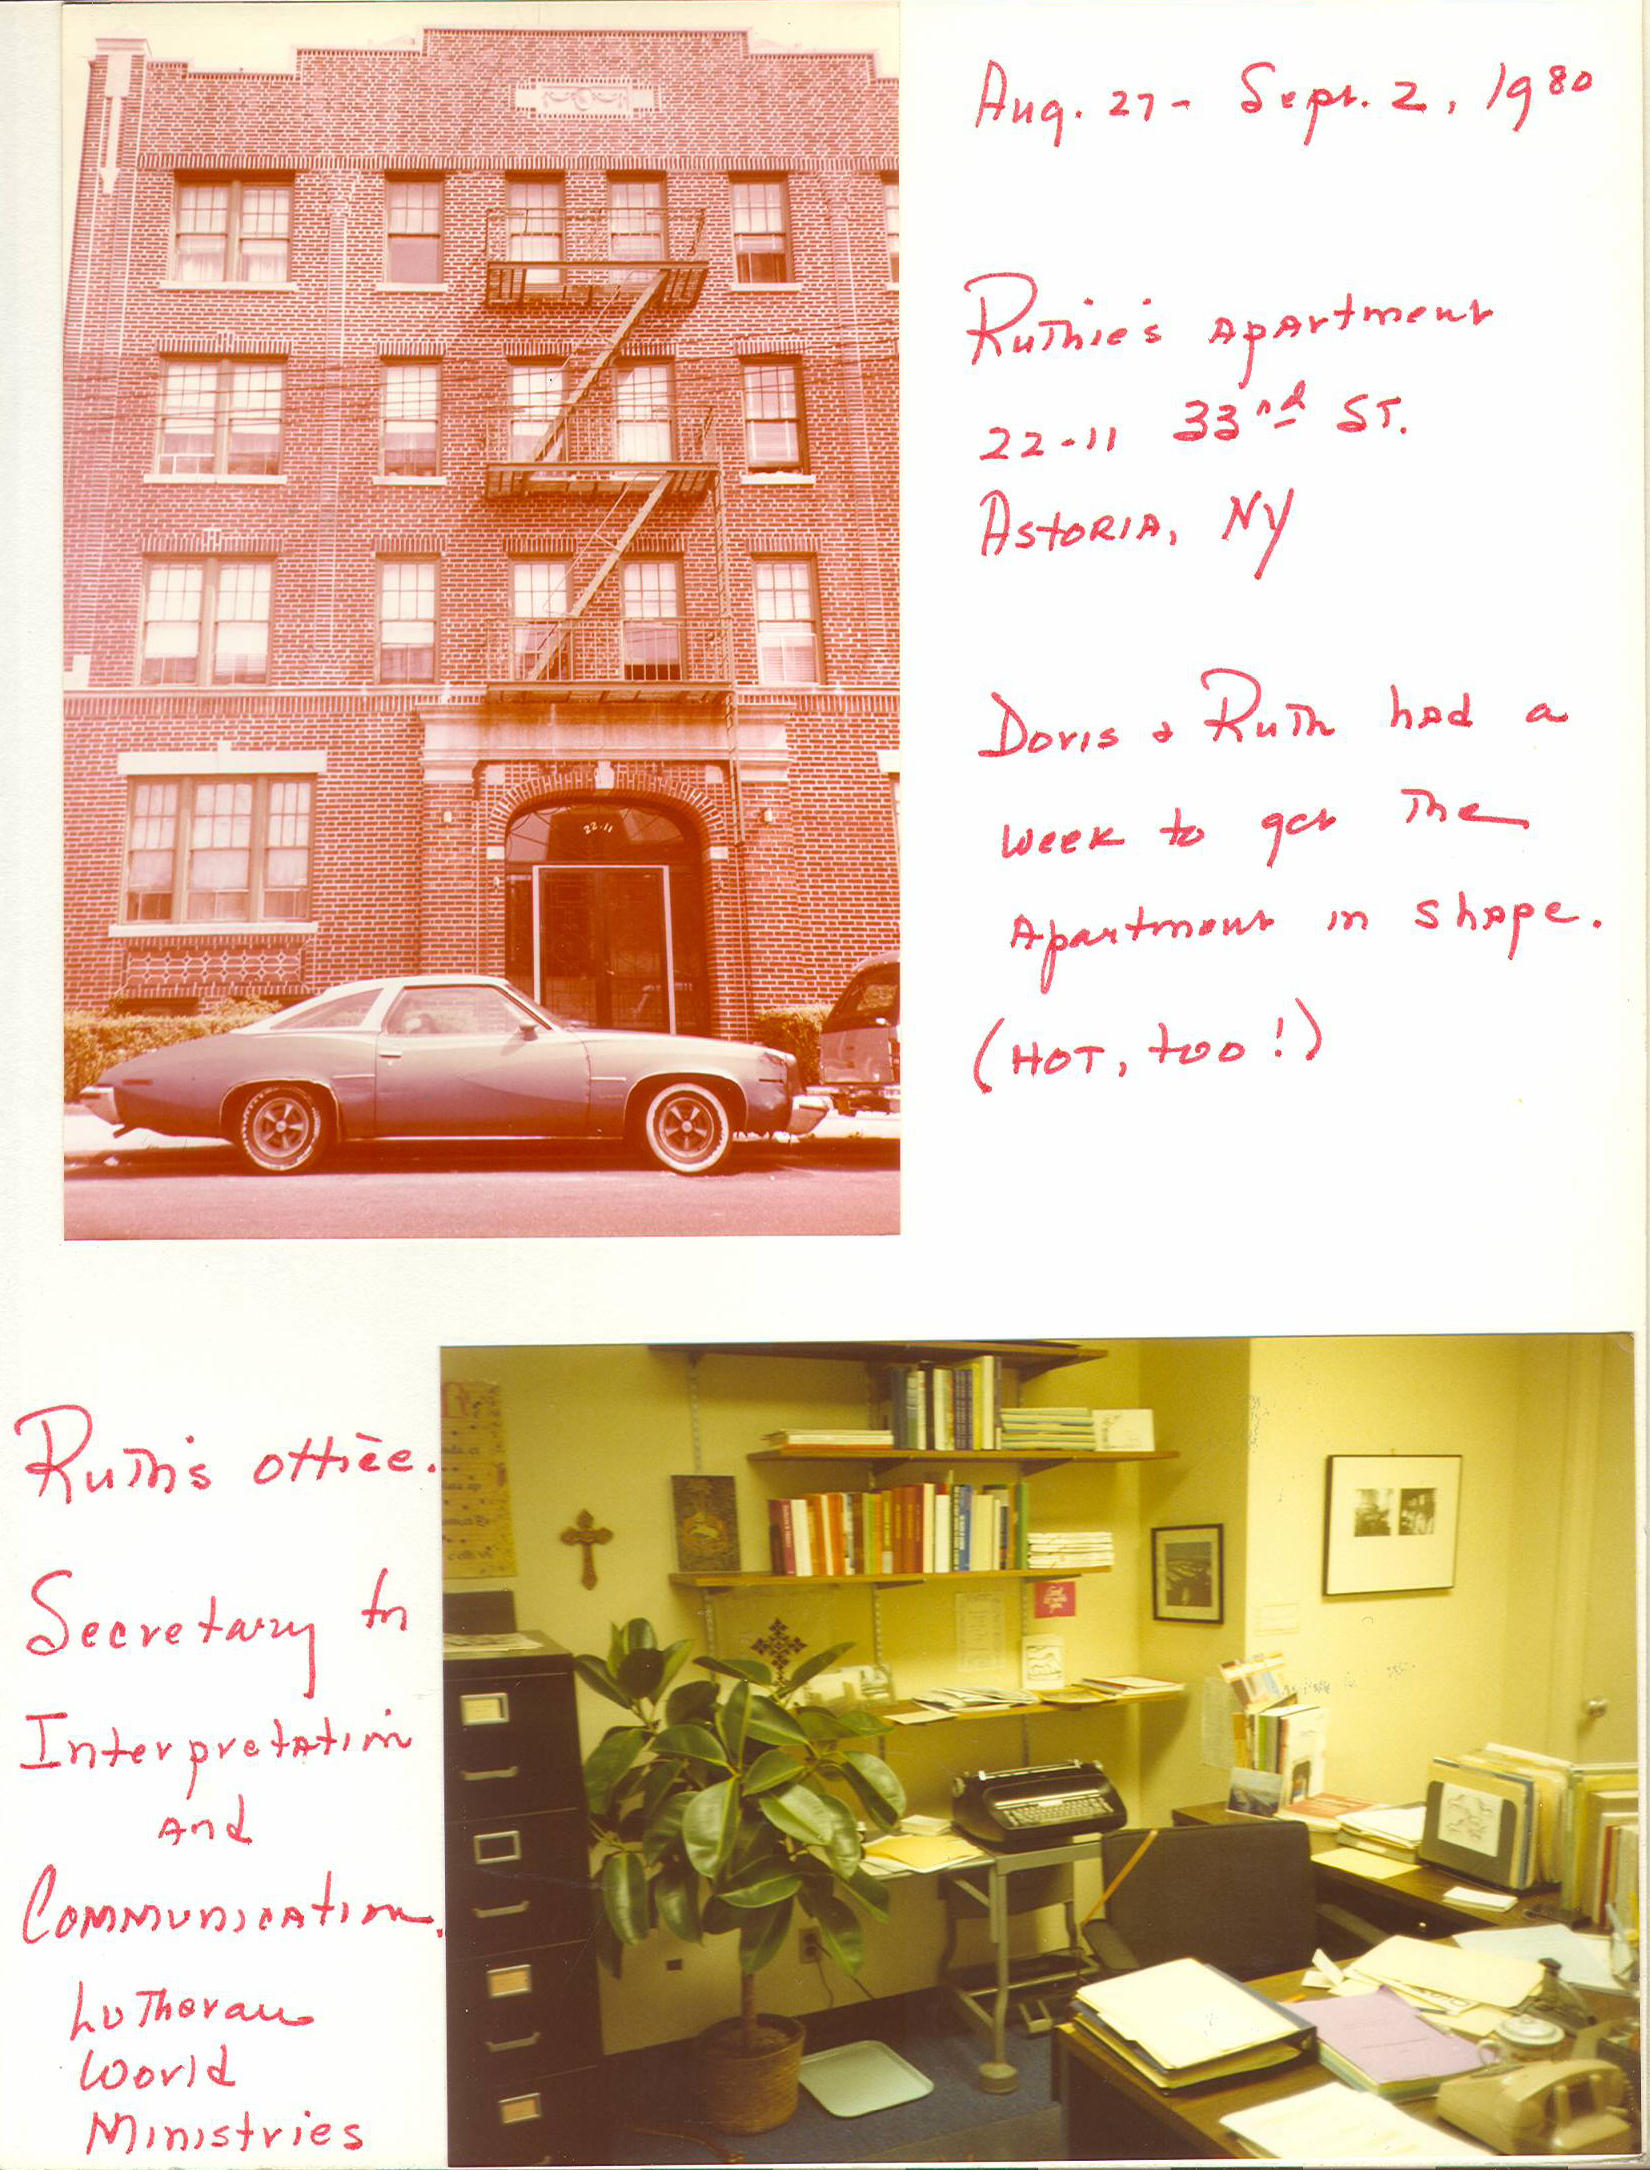 Aug. 27 - Sept. 2, 1980
Ruthie's Apartment
22-11 33rd St.
Astoria, NY
Doris & Ruth had a
week to get the
Apartment in shape.
(HOT, too!)
22-11
Ruth's office.
Secretary to
Interpretation
And
Communication.
Lutheran
World
Ministries